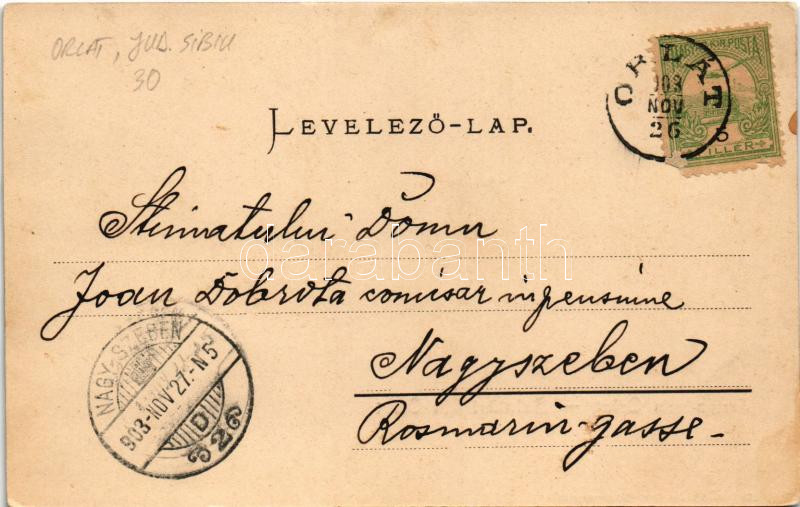 ORLAT, JUD. SIBIU
30
MAGYAR KIR. POSTA
ORLÁT
903
NOV
26
5
FILLÉR
LEVELEZŐ-LAP.
Stimatului Domn
Joan Dobrota comisar in pensiune
Nagyszeben
Rosmarin-gasse.
NAGY-SZEBEN
903-NOV 27.-N 5
D
2
darabanth